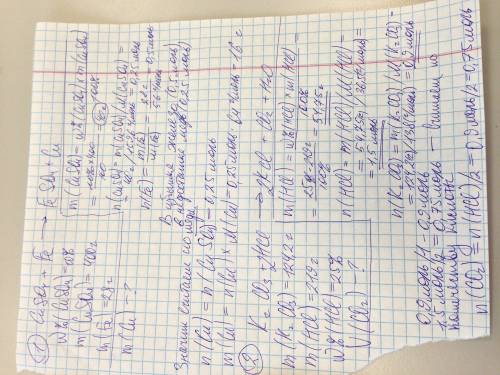 ① CuSO₄ + Fe → FeSO₄ + Cu
m(CuSO₄) = 400г
m(Fe) = 28г
m(Cu) - ?
m(CuSO₄) = w%(CuSO₄) × m(CuSO₄)
n(CuSO₄) = m(CuSO₄)/M(CuSO₄) =
= 0,25 моль
n(Fe) = = 28г = 0,5 моль
56г/моль
В избытке железо (0,5 моль)
в недостатке медь (0,25 моль)
Значит считаем по меди
n(Cu) = n(CuSO₄) = 0,25 моль
m(Cu) = n(Cu) × M(Cu) = 0,25 моль × 64г/моль = 16г
② K₂CO₃ + 2HCl → 2KCl + CO₂ + H₂O
m(K₂CO₃) = 124,2г
m(HCl) = 219г
w%(HCl) = 25%
V(CO₂) - ?
m(HCl) = w%(HCl) × m(HCl) =
100%
= 25% × 219г = 54,75г
100%
n(HCl) = m(HCl)/M(HCl) =
= 54,75г/36,5г/моль =
= 1,5 моль
n(K₂CO₃) = m(K₂CO₃)/M(K₂CO₃) =
= 124,2г/138г/моль = 0,9 моль
0,9 моль/1 = 0,9 моль
1,5 моль/2 = 0,75 моль - считаем по
количеству кислоты
n(CO₂) = n(HCl)/2 = 0,9 моль/2 = 0,75 моль